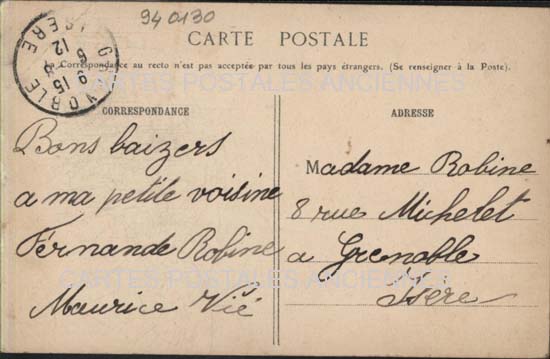 940130
CARTE POSTALE
Correspondance au recto n'est pas acceptée par tous les pays étrangers. (Se renseigner à la Poste).
CARTES POSTALES ANCIENNES
CORRESPONDANCE
ADRESSE
Bons baizers
a ma petite voisine
Fernande Robine
Maurice Vié
Madame Robine
8 rue Michelet
a Grenoble
Isère
CARTES POSTALES ANCIENNES
GRENOBLE
ISERE
9 15
12